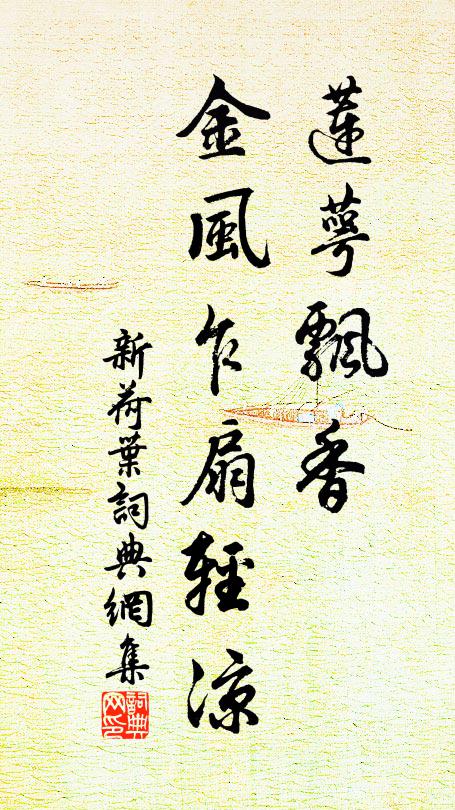 蓮萼飄香
金風乍扇輕涼
新荷葉詞典網集
詞典
网印